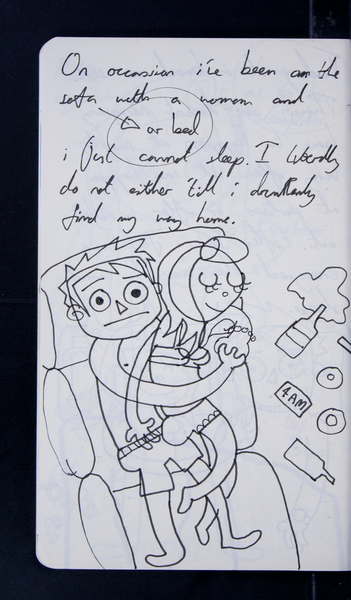 On occassion i've been on the
sofa with a woman and
or bed
i just cannot sleep. I literally
do not either 'till i drunkenly
find my way home.
4AM